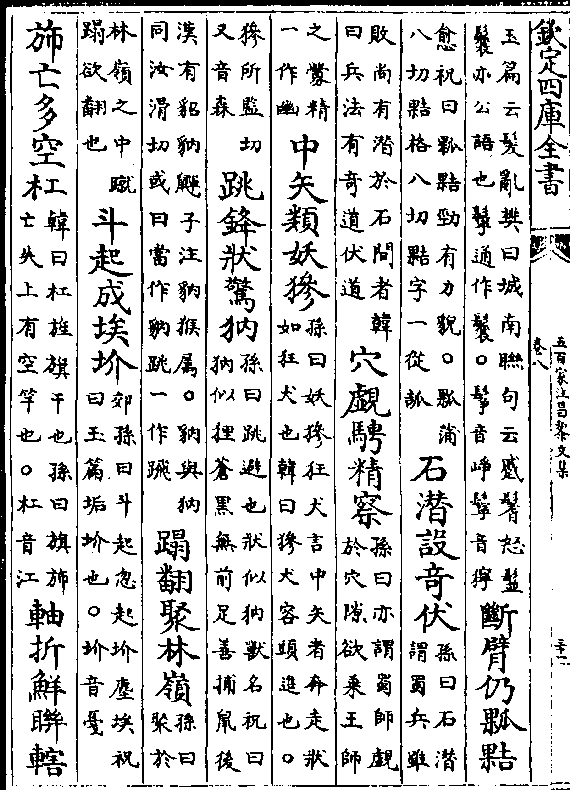 欽定四庫全書
五百家注昌黎文集
卷八
三十二
玉篇云髮亂樊曰城南聯句云感鬐怒鬡
鬟亦公語也鬡通作鬟○髼音崢鬡音獰
斷臂仍瓢𪐴
愈祝曰瓢𪐴勁有力貌○瓢蒲
八切𪐴格八切𪐴字一從瓠
石潛設奇伏
孫曰石潛
謂蜀兵雖
敗尚有潛於石間者韓
曰兵法有奇道伏道
穴覷騁精察
孫曰亦謂蜀師覷
於穴隙欲乘王師
之釁精
一作幽
中矢類妖㺑
孫曰妖㺑狂犬言中矢者奔走狀
如狂犬也韓曰㺑犬容頭進也○
㺑所監切
又音森
跳鋒狀驚豽
孫曰跳避也狀似豽獸名祝曰
豽似狸蒼黑無前足善捕鼠後
漢有貂豽鼲子注豽猴属○豽與豽
同汝滑切或曰當作豽跳一作跪
蹋翻聚林嶺
孫曰
聚於
林嶺之中蹴
蹋欲翻也
斗起成埃圿
郊孫曰斗起忽起圿塵埃祝
曰玉篇垢圿也○圿音戞
斾亡多空杠
韓曰杠旌旗干也孫曰旗斾
亡失上有空竿也○杠音江
軸折鮮聯轄